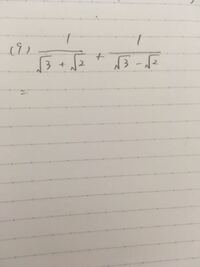 (9) 1/(√3 + √2) + 1/(√3 - √2)
=